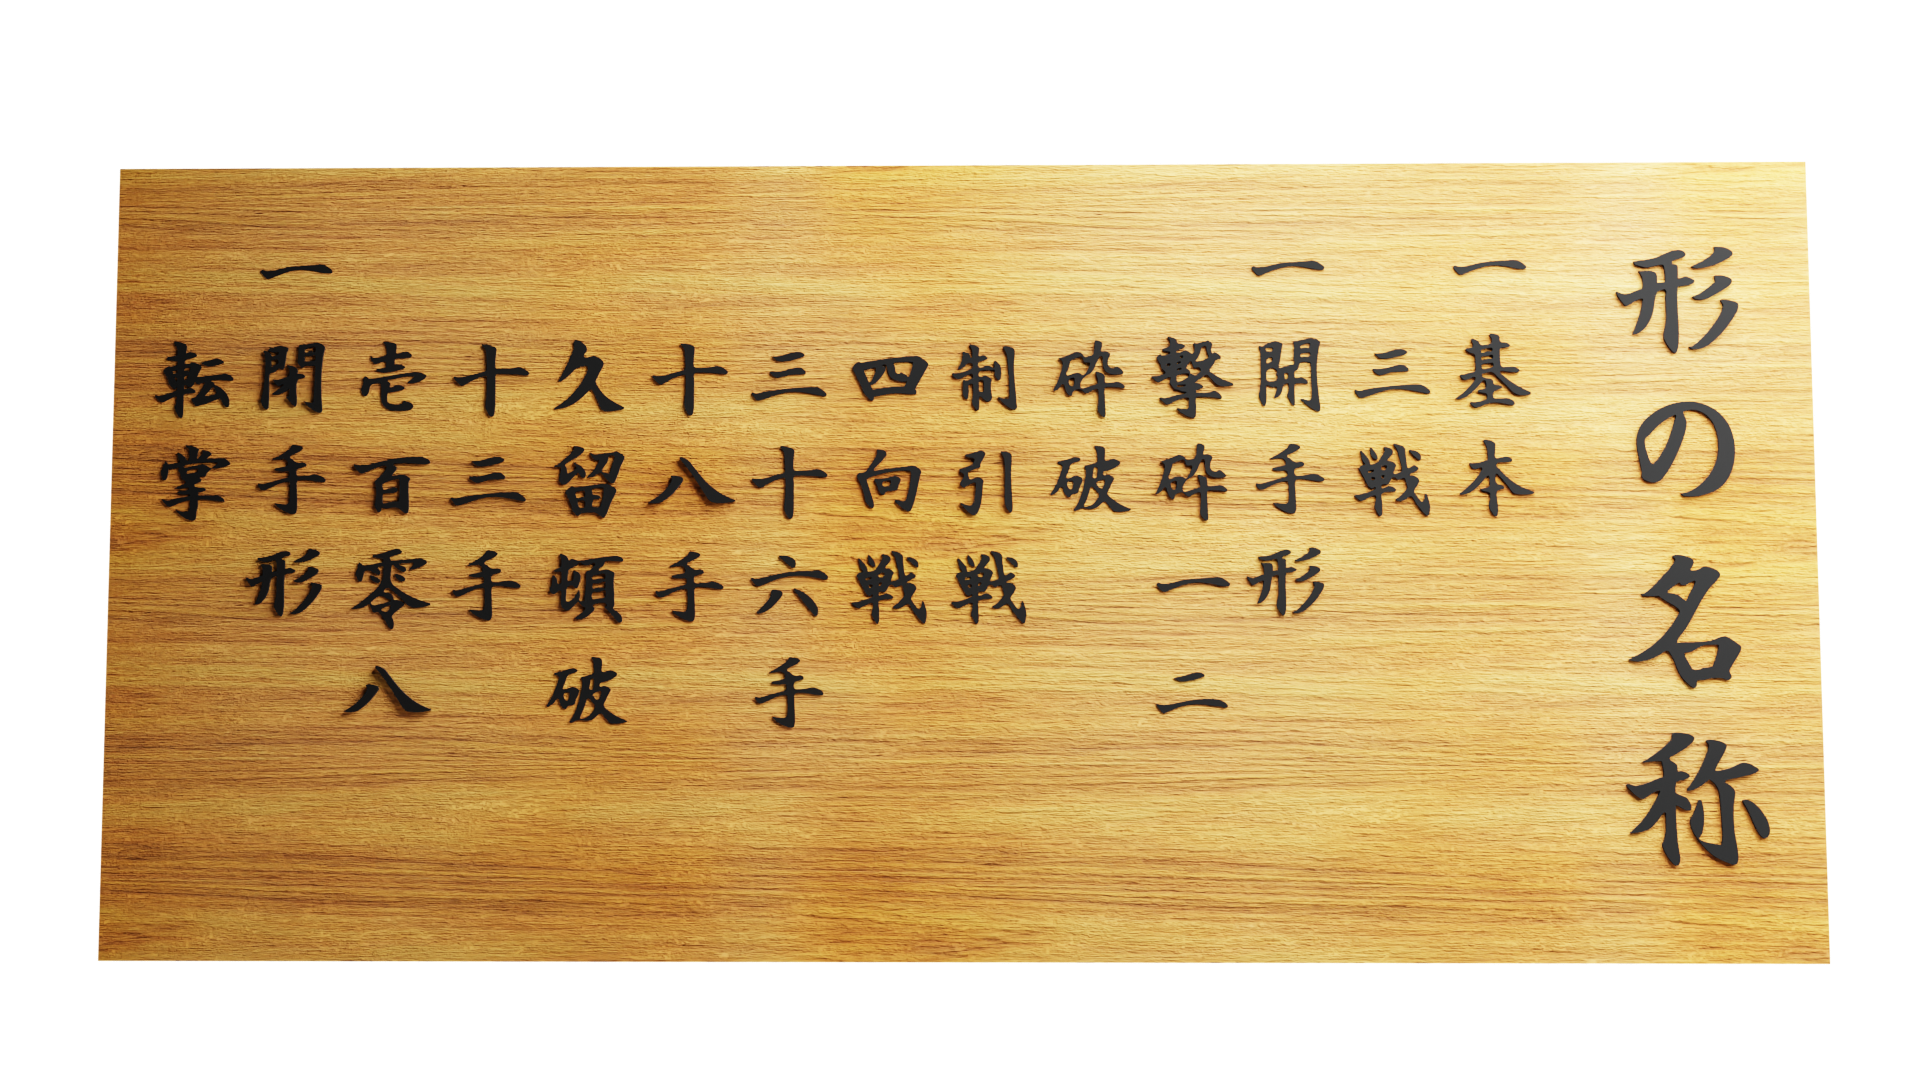 形の名称
一 基本
三戦
一 開手形
撃砕一二
砕破
制引戦
四向戦
三十六手
十八手
久留頓破
十三手
壱百零八
一 閉手形
転掌